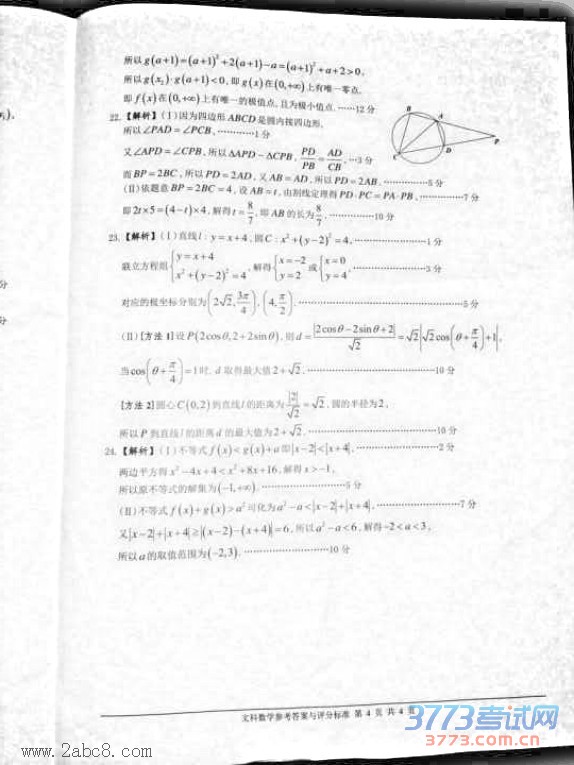 所以g(a+1)=(a+1)²+2(a+1)-a=(a+1)²+a+2>0,
所以g(x₂)·g(a+1)<0, 即g(x)在(0,+∞)上有唯一零点,
即f(x)在(0,+∞)上有唯一的极值点, 且为极小值点. ……12分
22.【解析】(Ⅰ)因为四边形ABCD是圆内接四边形,
所以∠PAD=∠PCB, …………1分
又∠APD=∠CPB, 所以△APD~△CPB, PD/PB=AD/CB, …3分
而BP=2BC, 所以PD=2AD, 又AB=AD, 所以PD=2AB. ……………5分
(Ⅱ)依题意BP=2BC=4, 设AB=t, 由割线定理得PD·PC=PA·PB, ……………7分
即2t×5=(4-t)×4, 解得t=8/7, 即AB的长为8/7. ……………10分
B
A
D
C
P
23.【解析】(Ⅰ)直线l: y=x+4, 圆C: x²+(y-2)²=4, ……………………1分
联立方程组{y=x+4 x²+(y-2)²=4, 解得{x=-2 y=2 或{x=0 y=4, ……………………3分
对应的极坐标分别为(2√2, 3π/4), (4, π/2). ………………………………………………5分
(Ⅱ)[方法1]设P(2cosθ,2+2sinθ), 则d=|2cosθ-2sinθ+2|/√2=√2|√2cos(θ+π/4)+1|,
当cos(θ+π/4)=1时, d取得最大值2+√2. ……………………………………10分
[方法2]圆心C(0,2)到直线l的距离为|2|/√2=√2, 圆的半径为2,
所以P到直线l的距离d的最大值为2+√2. ……………………………………10分
24.【解析】(Ⅰ)不等式f(x)<g(x)+a即|x-2|<|x+4|, ………………………2分
两边平方得x²-4x+4<x²+8x+16, 解得x>-1,
所以原不等式的解集为(-1,+∞). ………………………5分
(Ⅱ)不等式f(x)+g(x)>a²可化为a²-a<|x-2|+|x+4|, ………………………7分
又|x-2|+|x+4|≥|(x-2)-(x+4)|=6, 所以a²-a<6, 解得-2<a<3,
所以a的取值范围为(-2,3). ………………………10分
文科数学参考答案与评分标准 第4页 共4页
3773考试网
3773.com.cn
www.2abc8.com
分
分